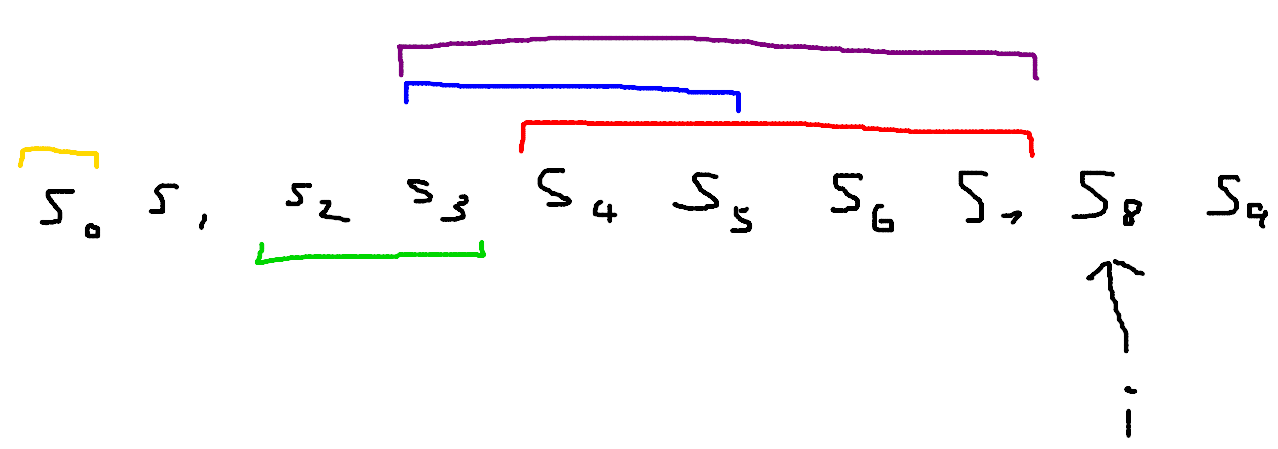 S₀ S₁ S₂ S₃ S₄ S₅ S₆ S₇ S₈ S₉
i